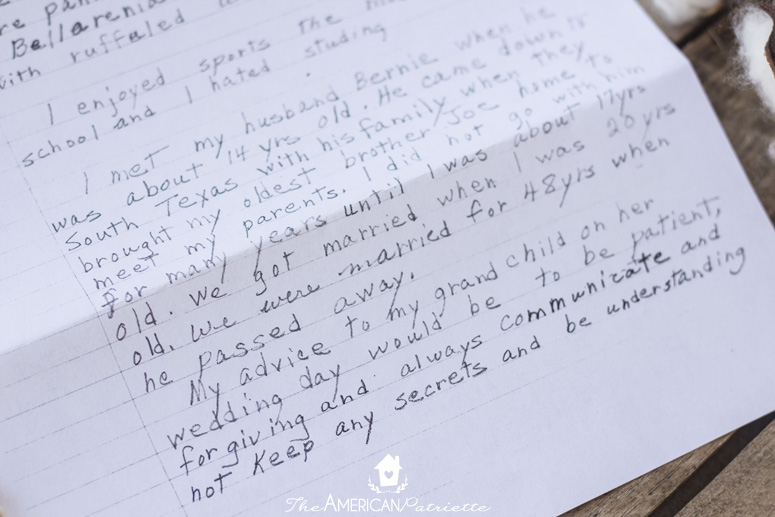 re
Bellarenia
with ruffaled
I enjoyed sports the
school and I hated studing
I met my husband Bernie when he
was about 14 yrs old. He came down to
South Texas with his family when they
brought my oldest brother Joe home to
meet my parents. I did not go with him
for many years until I was about 17yrs
old. We got married when I was 20 yrs
old. We were married for 48 yrs when
he passed away.
My advice to my grand child on her
wedding day would be to be patient,
forgiving and always communicate and
not keep any secrets and be understanding
The AMERICAN Patriette